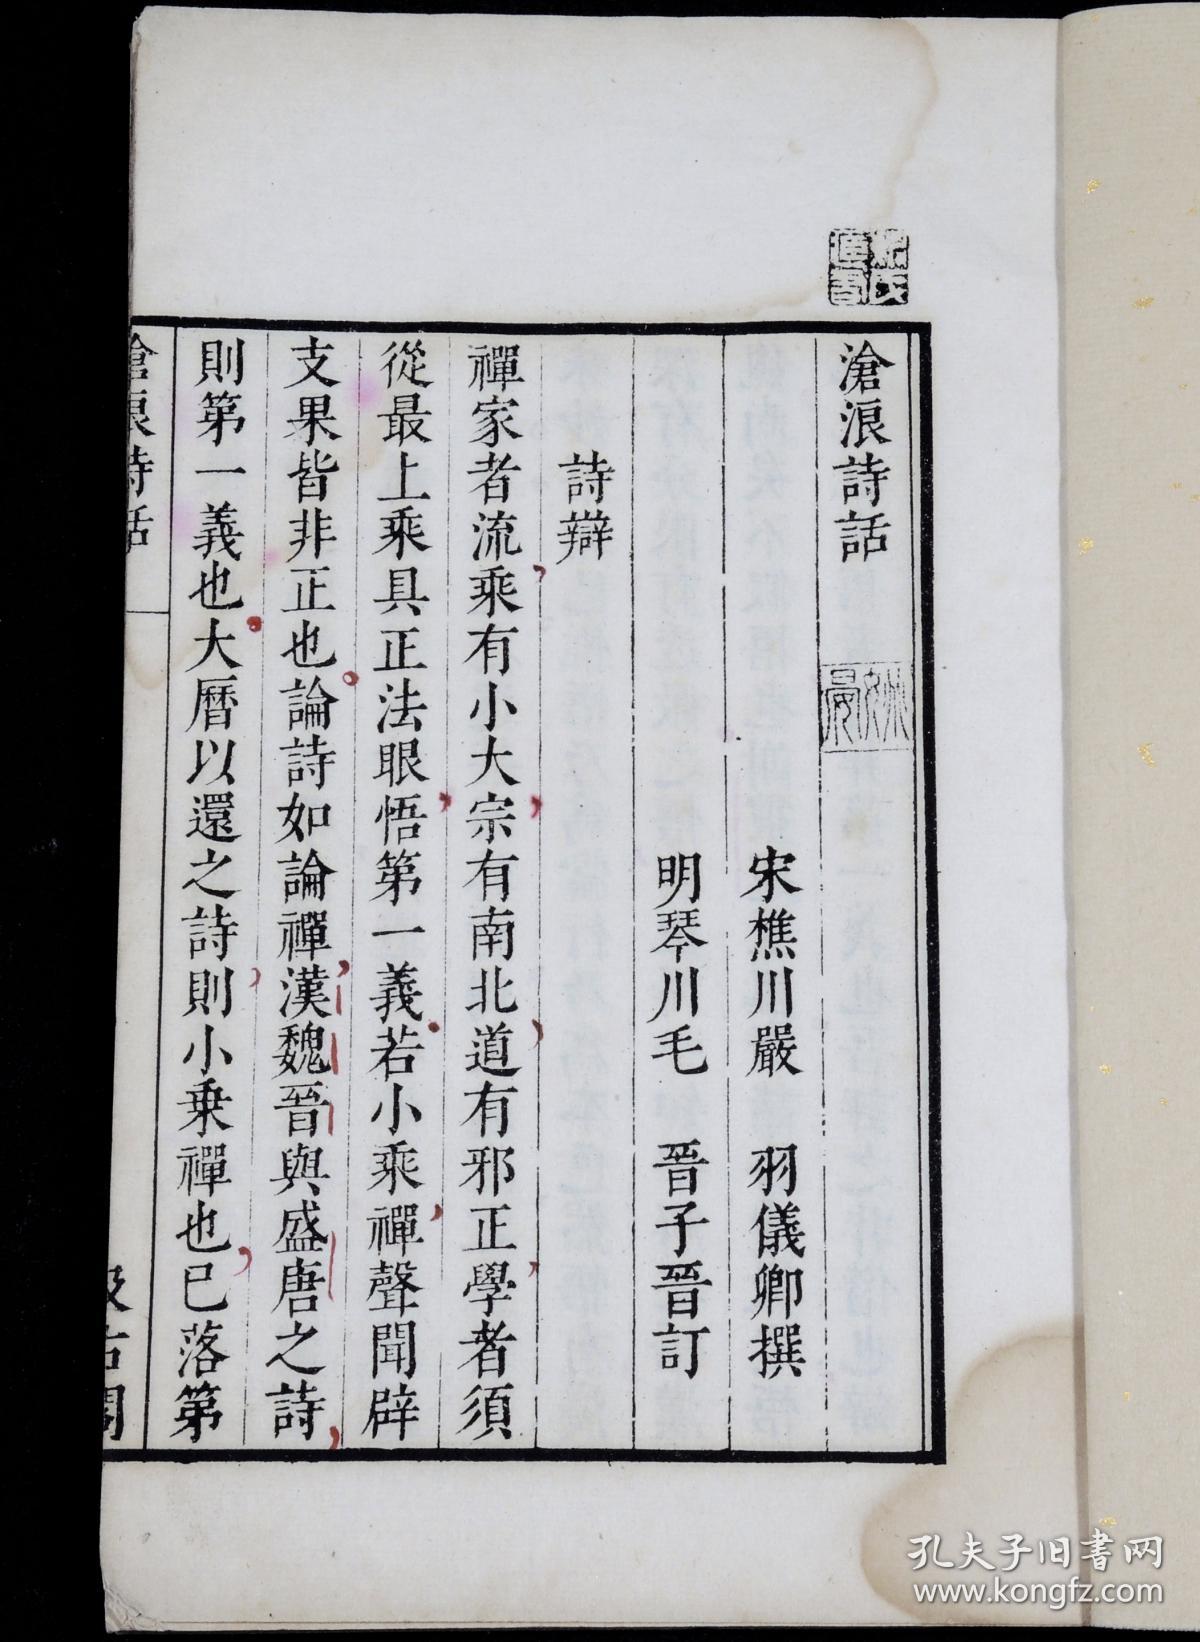 滄浪詩話
宋樵川嚴　羽儀卿撰
明琴川毛　晉子晉訂
詩辯
禪家者流乘有小大宗有南北道有邪正學者須
從最上乘具正法眼悟第一義若小乘禪聲聞辟
支果皆非正也論詩如論禪漢魏晉與盛唐之詩
則第一義也大曆以還之詩則小乗禪也已落第
滄浪詩話
汲古閣
孔夫子旧書网
www.kongfz.com